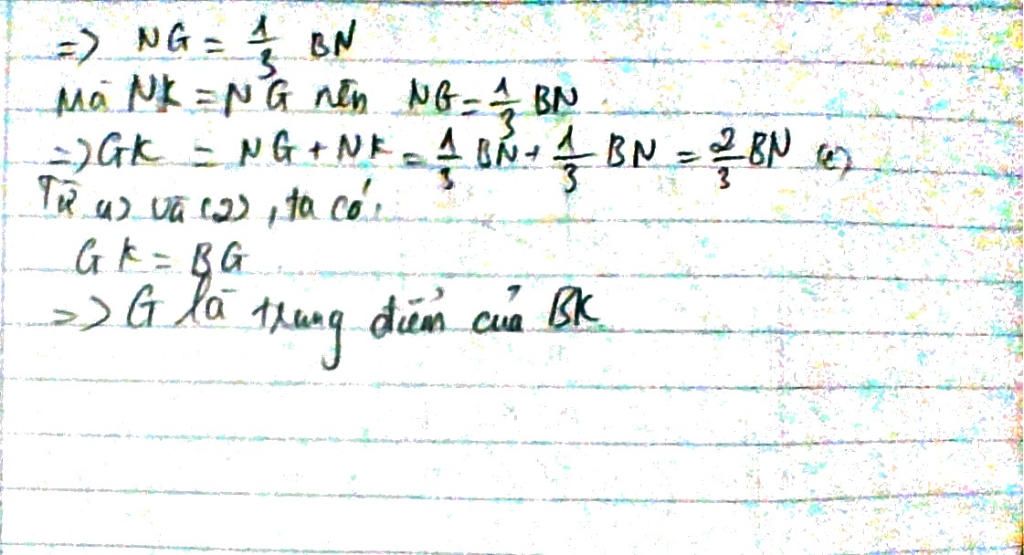 => NG = 1/3 BN
Mà NK = NG nên NG = 1/3 BN
=> GK = NG + NK = 1/3 BN + 1/3 BN = 2/3 BN (2)
Từ (1) và (2), ta có:
GK = BG
=> G là trung điểm của BK